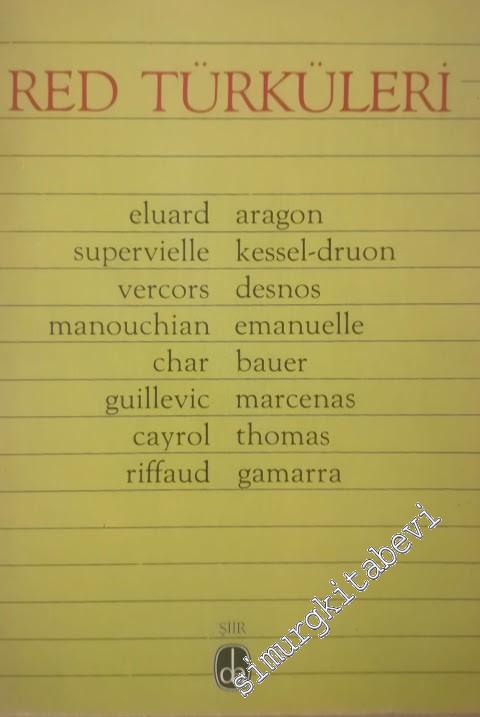 RED TÜRKÜLERİ
eluard aragon
supervielle kessel-druon
vercors desnos
manouchian emanuelle
char bauer
guillevic marcenas
cayrol thomas
riffaud gamarra
ŞIIR
de
simurgkitabevi